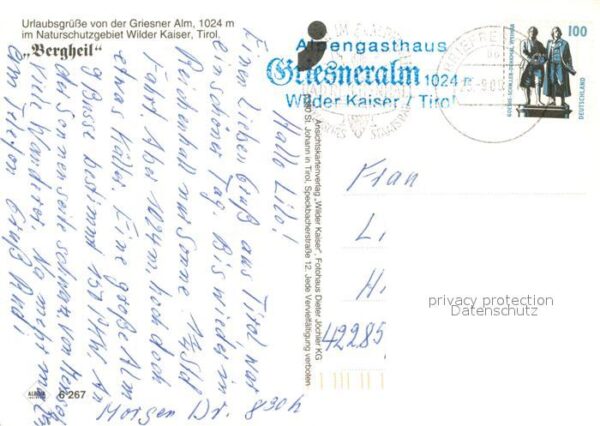 Urlaubsgrüße von der Griesner Alm, 1024 m
im Naturschutzgebiet Wilder Kaiser, Tirol.
„Bergheil“
Hallo Lilo!
Einen Lieben Gruß aus Tirol war
ein schöner Tag. Bis wieder in
Reichenhall nur Sonne 1½ Std
Fahrt. Aber 1024 m. hoch doch
etwas kälter. Eine große Alm
Busse bestimmt 15 PKW. An
der Sonnenseite schwarz von Mensch
viele Wanderer. Na mehr
am Telefon Gruß
Morgen Dr. 8 30 h
ALPINA
6 267
6380 St. Johann in Tirol, Speckbacherstraße 12. Jede Vervielfältigung verboten
Ansichtskartenverlag „Wilder Kaiser“, Fotohaus Dieter Jöchler KG
Alpengasthaus
Griesneralm 1024 m
Wilder Kaiser / Tirol
100
GOETHE-SCHILLER-DENKMAL WEIMAR
DEUTSCHLAND
Frau
L
H
42285
privacy protection
Datenschutz